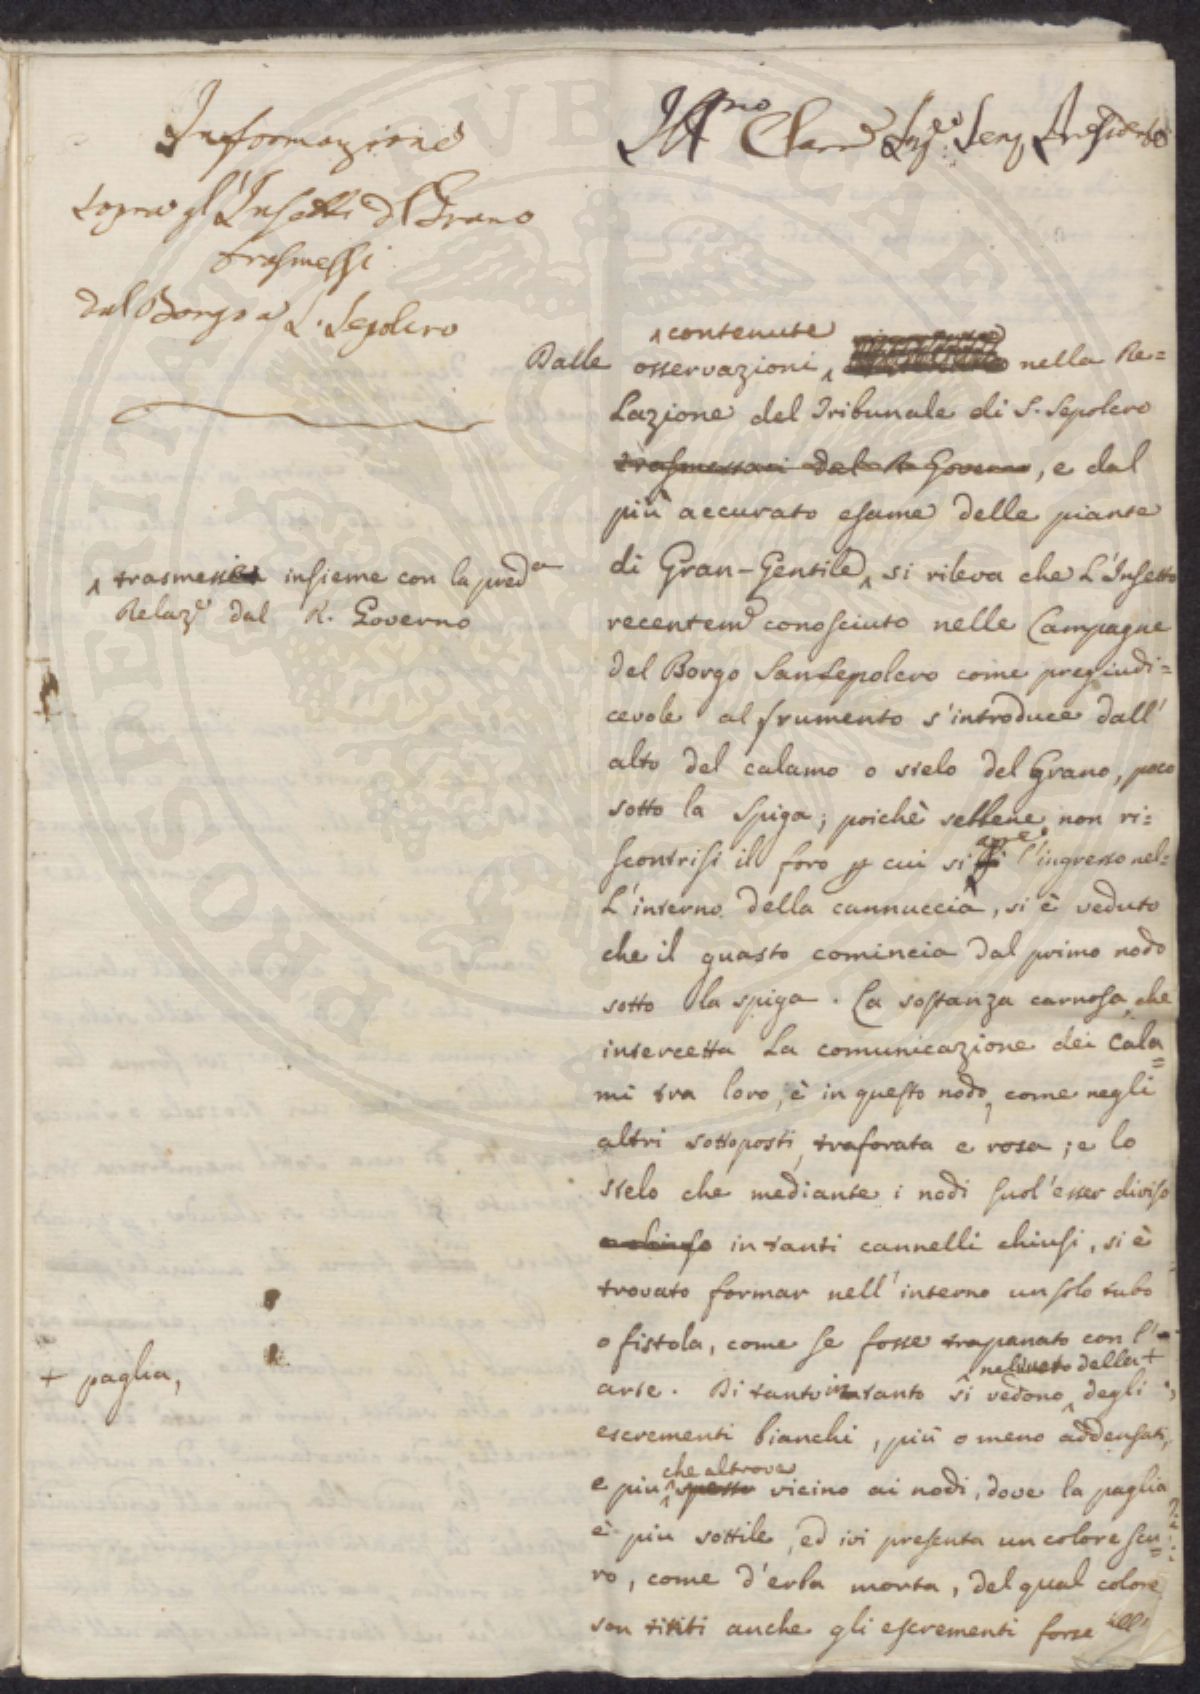 Informazione
sopra gl'Insetti del Grano
trasmessi
dal Borgo a S. Sepolcro
Ill.mo Clar.mo Sig.e Presidente
^ contenute
Dalle osservazioni ^ nella Re=
lazione del Tribunale di S. Sepolcro
trasmessaci dal R. Governo, e dal
più accurato esame delle piante
di Gran-Gentile ^ si rileva che l'Insetto
^ trasmesse insieme con la pred.a
Relaz.e dal R. Governo
recentem.e conosciuto nelle Campagne
del Borgo San Sepolcro come pregiudi=
cevole al frumento s'introduce dall'
alto del calamo o stelo del Grano, poco
sotto la spiga; poichè sebbene non ri=
scontrisi il foro p cui si apre l'ingresso nel=
l'interno della cannuccia, si è veduto
che il guasto comincia dal primo nodo
sotto la spiga. La sostanza carnosa, che
intercetta la comunicazione dei Cala=
mi tra loro, è in questo nodo, come negli
altri sottoposti, traforata e rosa; e lo
stelo che mediante i nodi suol'esser diviso
e chiuso in tanti cannelli chiusi, si è
trovato formar nell'interno un solo tubo
o fistola, come se fosse trapanato con l'
arte. Di tanto in tanto si vedono ^ degli
nel vuoto della +
+ paglia,
escrementi bianchi, più o meno addensati,
e più ^ spesso vicino ai nodi, dove la paglia
che altrove
è più sottile, ed ivi presenta un colore scu=
ro, come d'erba morta, del qual colore
son tinti anche gli escrementi forse
PROSPERITATI PUBLICAE